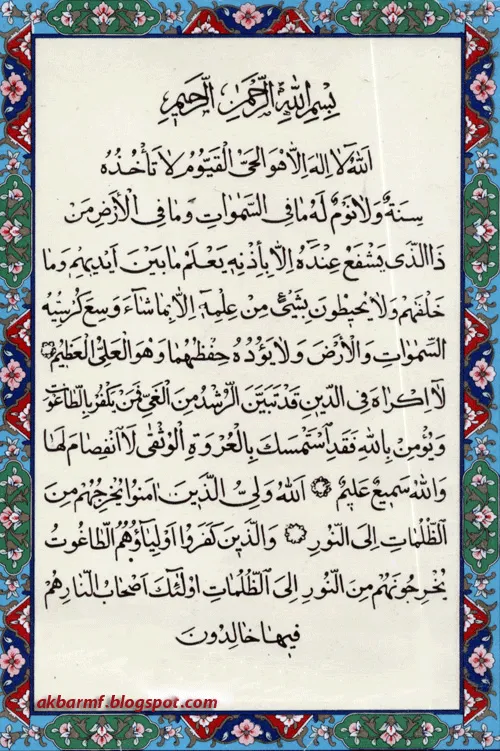 بِسْمِ اللهِ الرَّحْمٰنِ الرَّحِيمِ
اَللهُ لَا اِلٰهَ اِلَّا هُوَ الْحَيُّ الْقَيُّومُ لَا تَأْخُذُهُ
سِنَةٌ وَلَا نَوْمٌ لَهُ مَا فِي السَّمٰوَاتِ وَمَا فِي الْأَرْضِ مَنْ
ذَا الَّذِي يَشْفَعُ عِنْدَهُ اِلَّا بِإِذْنِهِ يَعْلَمُ مَا بَيْنَ اَيْدِيهِمْ وَمَا
خَلْفَهُمْ وَلَا يُحِيطُونَ بِشَيْءٍ مِنْ عِلْمِهِ اِلَّا بِمَا شَاءَ وَسِعَ كُرْسِيُّهُ
السَّمٰوَاتِ وَالْأَرْضَ وَلَا يَؤُدُهُ حِفْظُهُمَا وَهُوَ الْعَلِيُّ الْعَظِيمُ ۞
لَا اِكْرَاهَ فِي الدِّينِ قَدْ تَبَيَّنَ الرُّشْدُ مِنَ الْغَيِّ فَمَنْ يَكْفُرْ بِالطَّاغُوتِ
وَيُؤْمِنْ بِاللهِ فَقَدِ اسْتَمْسَكَ بِالْعُرْوَةِ الْوُثْقٰى لَا انْفِصَامَ لَهَا
وَاللهُ سَمِيعٌ عَلِيمٌ ۞ اَللهُ وَلِيُّ الَّذِينَ اٰمَنُوا يُخْرِجُهُمْ مِنَ
الظُّلُمَاتِ اِلَى النُّورِ ۞ وَالَّذِينَ كَفَرُوا اَوْلِيَاؤُهُمُ الطَّاغُوتُ
يُخْرِجُونَهُمْ مِنَ النُّورِ اِلَى الظُّلُمَاتِ اُولٰئِكَ اَصْحَابُ النَّارِ هُمْ
فِيهَا خَالِدُونَ
akbarmf.blogspot.com